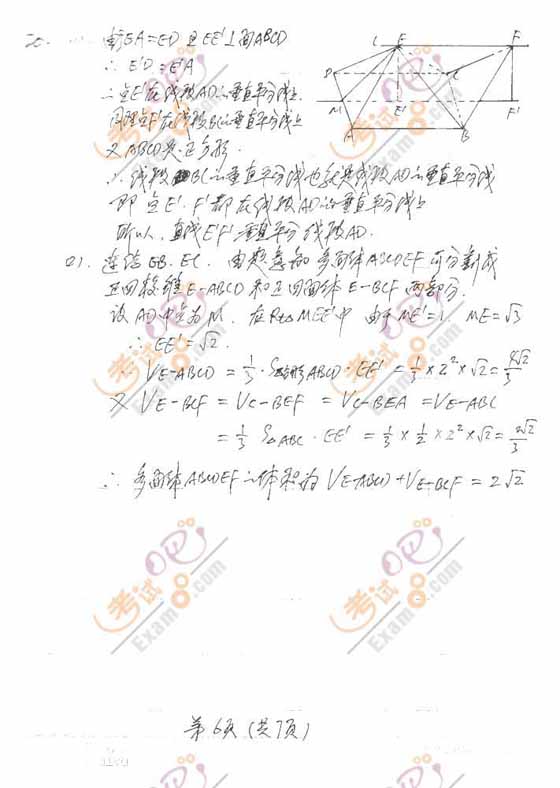 20. 由于EA=ED且EE'⊥面ABCD
∴ E'D=E'A
∴ 点E'在线段AD的垂直平分线上
同理点F'在线段BC的垂直平分线上
又ABCD是正方形.
∴ 线段BC的垂直平分线也就是线段AD的垂直平分线
即点E'、F'都在线段AD的垂直平分线上
所以，直线E'F'垂直平分线段AD.
连结EB、EC. 由题意知多面体ABCDEF可分割成
正四棱锥E-ABCD和正四面体E-BCF两部分.
设AD中点为M. 在Rt△MEE'中 由于ME'=1, ME=√3
∴ EE'=√2.
∴ VE-ABCD = 1/3 · S正方形ABCD · EE' = 1/3 × 2² × √2 = 4√2/3
又 VE-BCF = VC-BEF = VC-BEA = VE-ABC
= 1/3 S△ABC · EE' = 1/3 × 1/2 × 2² × √2 = 2√2/3
∴ 多面体ABCDEF的体积为 VE-ABCD + VE-BCF = 2√2
L E F
D C
M E' F'
A B
第6页(共7页)
考试吧
Exam8.com
考试吧
Exam8.com
考试吧
Exam8.com
考试吧
Exam8.com
考试吧
Exam8.com
考试吧
Exam8.com